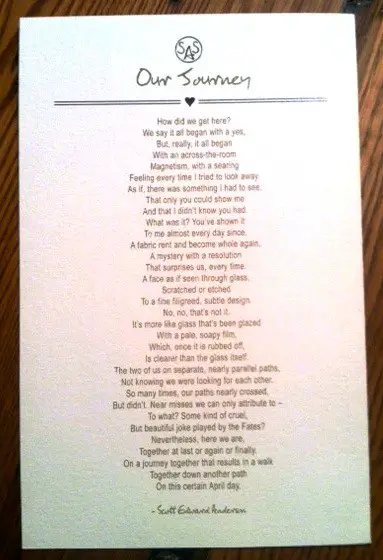 SAS
Our Journey
How did we get here?
We say it all began with a yes,
But, really, it all began
With an across-the-room
Magnetism, with a searing
Feeling every time I tried to look away.
As if, there was something I had to see,
That only you could show me
And that I didn't know you had.
What was it? You've shown it
To me almost every day since.
A fabric rent and become whole again,
A mystery with a resolution
That surprises us, every time.
A face as if seen through glass,
Scratched or etched
To a fine filigreed, subtle design.
No, no, that's not it.
It's more like glass that's been glazed
With a pale, soapy film,
Which, once it is rubbed off,
Is clearer than the glass itself.
The two of us on separate, nearly parallel paths,
Not knowing we were looking for each other.
So many times, our paths nearly crossed,
But didn't. Near misses we can only attribute to –
To what? Some kind of cruel,
But beautiful joke played by the Fates?
Nevertheless, here we are,
Together at last or again or finally.
On a journey together that results in a walk
Together down another path
On this certain April day.
- Scott Edward Anderson